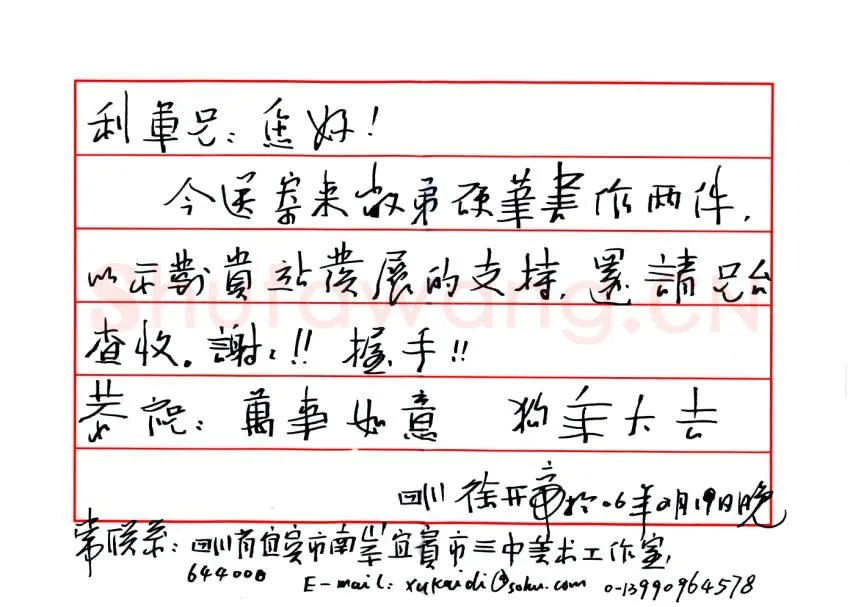 利軍兄：您好！
今送寄来敝弟硬筆書作两件，
以示對貴站發展的支持，還請兄台
查收。謝〻！！握手！！
恭祝：萬事如意 狗年大吉
四川徐开帝於06年2月19日晚
常联系：四川省宜宾市南岸宜賓市三中美术工作室，
644000 E-mail：xukaidi@sohu.com 0-13990964578
Shufawang.CN